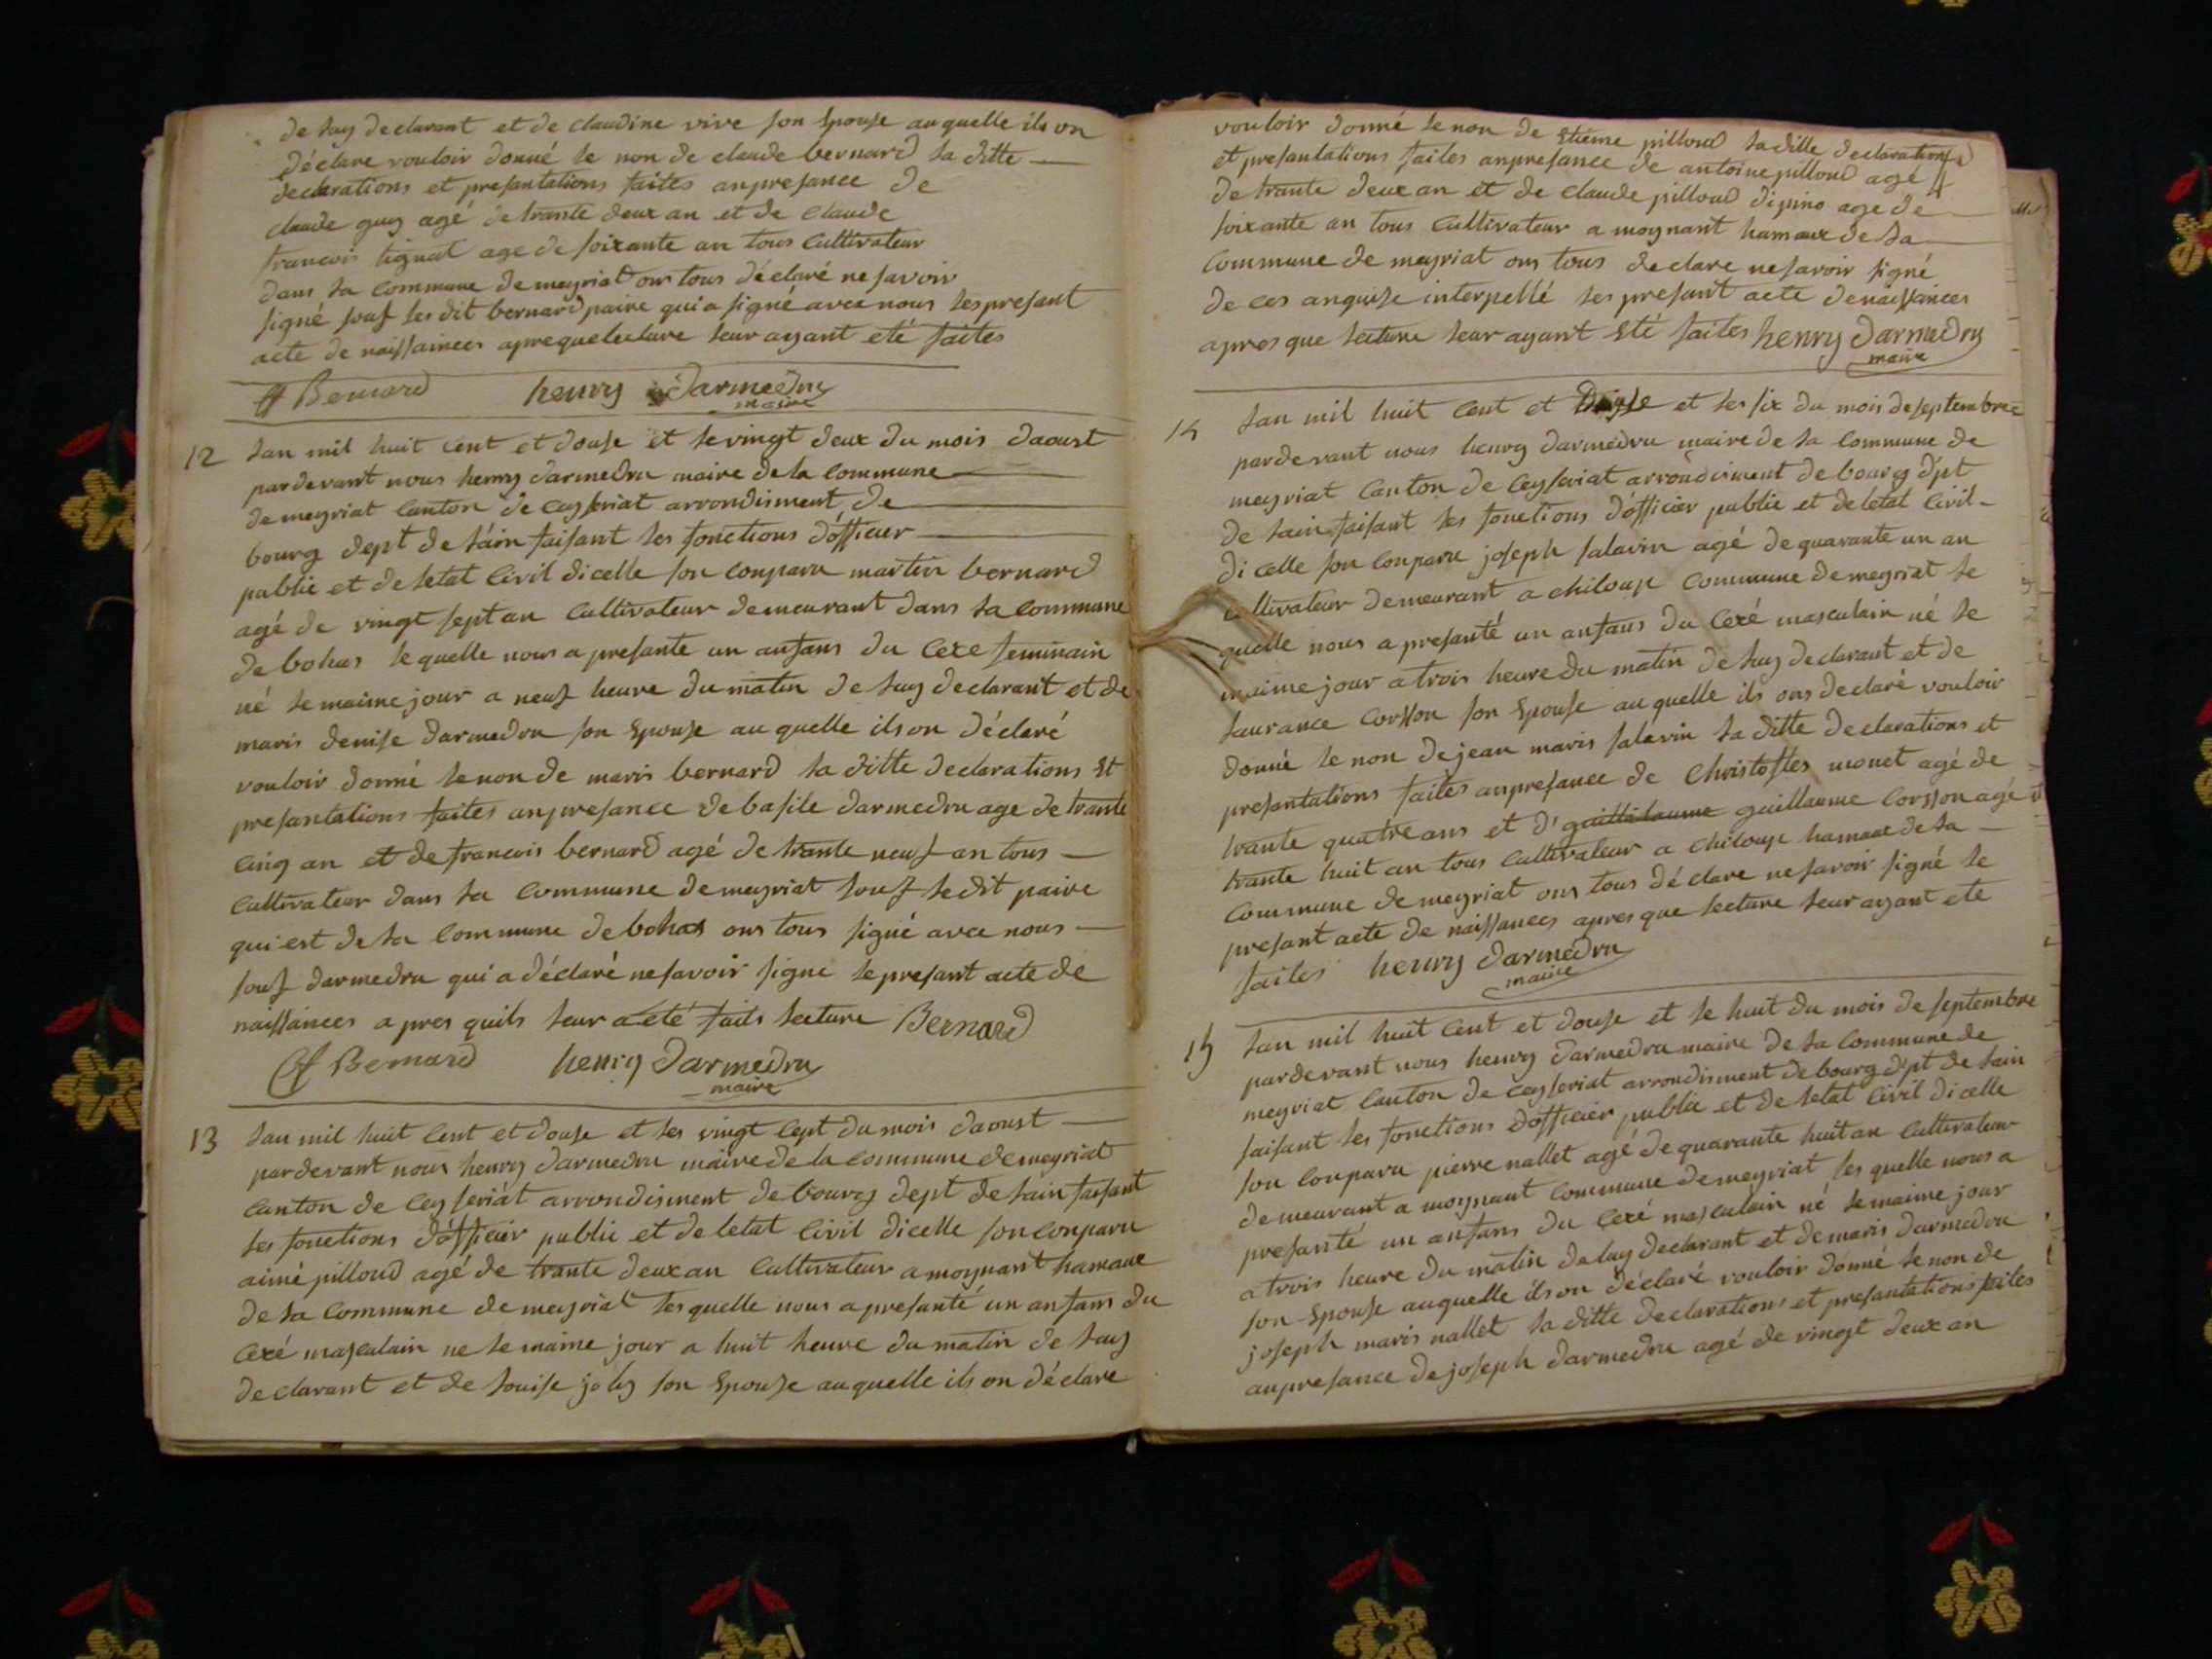 de luy declarant et de claudine vive son Epouse auquelle ils on
déclare vouloir donné le non de claude bernard la ditte
declarations et presantations faites anpresance de
claude guy agé de trante deux an et de claude
francois tignat age de soixante an tous Cultivateur
dans la commune de meyriat ons tous déclaré ne savoir
signé souf les dit bernard paire qui a signé avec nous les presant
acte de naissainces apreque lecture leur ayant eté faites
Bernard henry darmedru
maire
12 Lan mil huit cent et douse et le vingt deux du mois daoust
pardevant nous henry darmedru maire de la commune
de meyriat Canton de ceyseriat arrondisment de
bourg dept de láin faisant les fonctions d'officier
public et de letat Civil dicelle son conparu martin bernard
agé de vingt sept an Cultivateur demeurant dans la commune
de bohas le quelle nous a presante un anfans du Cexe feminain
né le maime jour a neuf heure du matin de luy declarant et de
maris denise darmedru son Epouse au quelle ils on déclaré
vouloir donné le non de maris bernard la ditte declarations Et
presantations faites anpresance de basile darmedru age de trante
Cinq an et de francois bernard agé de trante neuf an tous
Cultivateur dans la Commune de meyriat souf le dit paire
qui est de la Commune de bohas ons tous signé avec nous
souf darmedru qui a déclaré ne savoir signe le presant acte de
naissances apres quils leur a eté faits lecture Bernard
Bernard henry darmedru
maire
13 Lan mil huit Cent et douse et les vingt Cept du mois daoust
pardevant nous henry darmedru maire de la commune de meyriat
Canton de Ceyseriat arrondisment de bourg dept de lain faisant
les fonctions d'officier public et de letat Civil dicelle son conparu
aimé pilloud agé de trante deux an Cultivateur a moynant hamaux
de la Commune de meyriat les quelle nous a presanté un anfans du
Cexé masculain ne le maime jour a huit heure du matin de luy
declarant et de louise joly son Epouse au quelle ils on déclare
vouloir donné le non de Etieme pilloud la ditte declarations
et presantations faites anpresance de antoine pilloud age
de trante deux an et de claude pilloud dipino age de
soixante an tous Cultivateur a moynant hamaux de la
Commune de meyriat ons tous declare ne savoir signé
de ces anquise interpellé les presant acte de naissainces
apres que lecture leur ayant Eté faites henry darmedru
maire
14 Lan mil huit Cent et douse et les six du mois de septembre
pardevant nous henry darmedru maire de la Commune de
meyriat Canton de Ceyseriat arrondisment de bourg dpt
de lain faisant les fonctions d'officier public et de letat Civil
dicelle son Conparu joseph salavin agé de quarante un an
cultivateur demeurant a chiloup Commune de meyriat le
quelle nous a presanté un anfans du Cexé masculain né le
maime jour a trois heure du matin de luy declarant et de
laurance Corsson son Epouse au quelle ils ons declaré vouloir
donné le non de jean maris salavin la ditte declarations et
presantations faites anpresance de Christofles monet agé de
trante quatre ans et d' guillilaume guillaume Corsson agé
trante huit an tous Cultivateur a chiloup hamaux de la
Commune de meyriat ons tous déclare ne savoir signé le
presant acte de naissances apres que lecture leur ayant ete
faites henry darmedru
maire
15 Lan mil huit Cent et douse et le huit du mois de septembre
pardevant nous henry darmedru maire de la Commune de
meyriat Canton de Ceyseriat arrondisment de bourg dpt de lain
faisant les fonctions d'officier public et de letat Civil dicelle
son Conparu pierre nallet agé de quarante huit an Cultivateur
demeurant a moynant Commune de meyriat les quelle nous a
presanté un anfans du Cexé masculain né le maime jour
a trois heure du matin de luy declarant et de maris darmedru
son Epouse auquelle ils on déclaré vouloir donné le non de
joseph maris nallet la ditte declarations et presantations faites
anpresance de joseph darmedru agé de vingt deux an